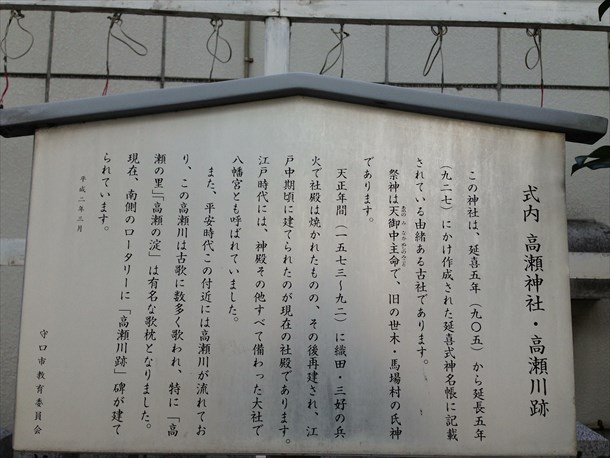 式内 高瀬神社・高瀬川跡
この神社は、延喜五年（九〇五）から延長五年
（九二七）にかけ作成された延喜式神名帳に記載
されている由緒ある古社であります。
祭神は天御中主命で、旧の世木・馬場村の氏神
であります。
天正年間（一五七三～九二）に織田・三好の兵
火で社殿は焼かれたものの、その後再建され、江
戸中期頃に建てられたのが現在の社殿であります。
江戸時代には、神殿その他すべて備わった大社で
八幡宮とも呼ばれていました。
また、平安時代この付近には高瀬川が流れてお
り、この高瀬川は古歌に数多く歌われ、特に「高
瀬の里」「高瀬の淀」は有名な歌枕となりました。
現在、南側のロータリーに「高瀬川跡」碑が建て
られています。
平成二年三月
守口市教育委員会